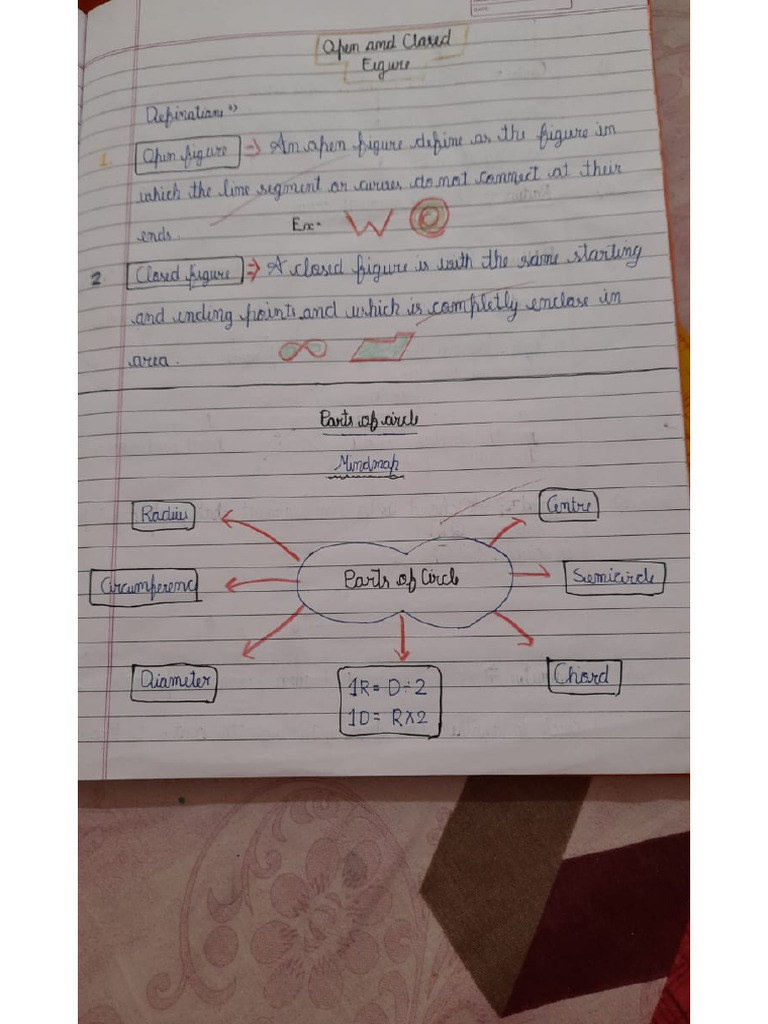 Open and Closed
Figure
Definations
1. Open figure ⇒ An open figure define as the figure in
which the line segment or curves do not connect at their
ends. Ex-
2. Closed figure ⇒ A closed figure is with the same starting
and ending points, and which is completly enclose in
area.
Parts of circle
Mindmap
Radius
Centre
Circumferenc
Parts of Circle
Semicircle
Diameter
1R = D÷2
1D = R×2
Chord